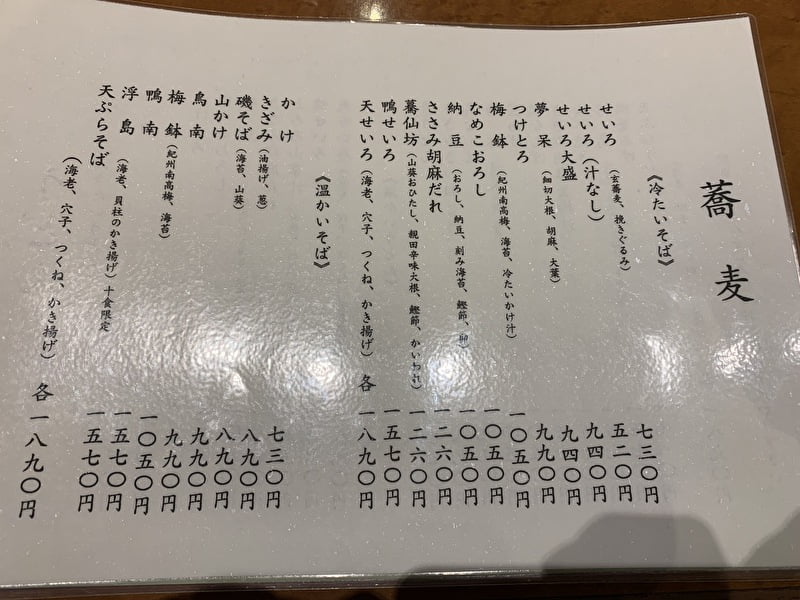 蕎麦
《冷たいそば》
せいろ (玄蕎麦、挽きぐるみ) 七三〇円
せいろ(汁なし) 五二〇円
せいろ大盛 九四〇円
夢呆 (細切大根、胡麻、大葉) 九四〇円
つけとろ 九九〇円
梅鉢 (紀州南高梅、海苔、冷たいかけ汁) 一〇五〇円
なめこおろし 一〇五〇円
納豆 (おろし、納豆、刻み海苔、鰹節、卵) 一〇五〇円
ささみ胡麻だれ 一二六〇円
蕎仙坊 (山葵おひたし、親田辛味大根、鰹節、かいわれ) 一二六〇円
鴨せいろ 一五七〇円
天せいろ (海老、穴子、つくね、かき揚げ) 各一八九〇円
《温かいそば》
かけ 七三〇円
きざみ (油揚げ、葱) 八九〇円
磯そば (海苔、山葵) 八九〇円
山かけ 九九〇円
鳥南 九九〇円
梅鉢 (紀州南高梅、海苔) 一〇五〇円
鴨南 一五七〇円
浮島 (海老、貝柱のかき揚げ) 十食限定 一五七〇円
天ぷらそば (海老、穴子、つくね、かき揚げ) 各一八九〇円